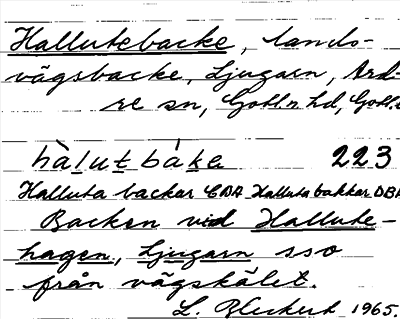 Hallutebacke, lands-
vägsbacke, Ljugarn, Ard-
re sn, Gotl. n hd, Gotl.
hàlut bákɐ 223
Halluta backar CDA Halluta bakkar DBA
Backen vid Hallute-
hagen, Ljugarn sso
från vägskälet.
L. Bleckert 1965.